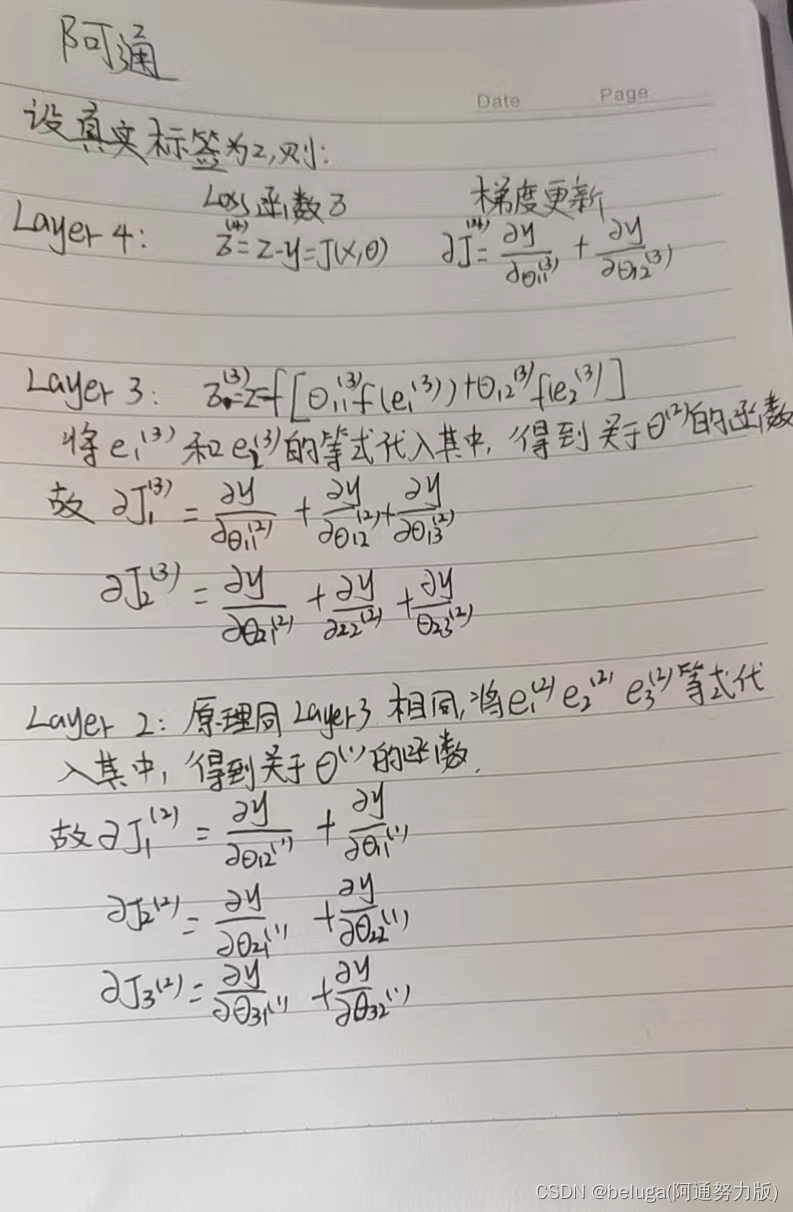 阿通
Date Page
设真实标签为z,则:
Loss函数δ 梯度更新
Layer 4: δ⁽⁴⁾=z-y=J(x,θ) ∂J⁽⁴⁾=∂y/∂θ₁₁⁽³⁾ + ∂y/∂θ₁₂⁽³⁾
Layer 3: δ⁽³⁾=z-f[θ₁₁⁽³⁾f(e₁⁽³⁾)+θ₁₂⁽³⁾f(e₂⁽³⁾]
将e₁⁽³⁾和e₂⁽³⁾的等式代入其中,得到关于θ⁽²⁾的函数
故 ∂J₁⁽³⁾ = ∂y/∂θ₁₁⁽²⁾ + ∂y/∂θ₁₂⁽²⁾ + ∂y/∂θ₁₃⁽²⁾
∂J₂⁽³⁾ = ∂y/∂θ₂₁⁽²⁾ + ∂y/∂₂₂⁽²⁾ + ∂y/θ₂₃⁽²⁾
Layer 2: 原理同Layer3 相同,将e₁⁽²⁾ e₂⁽²⁾ e₃⁽²⁾等式代
入其中,得到关于θ⁽¹⁾的函数.
故∂J₁⁽²⁾ = ∂y/∂θ₁₂⁽¹⁾ + ∂y/∂θ₁₁⁽¹⁾
∂J₂⁽²⁾ = ∂y/∂θ₂₁⁽¹⁾ + ∂y/∂θ₂₂⁽¹⁾
∂J₃⁽²⁾ = ∂y/∂θ₃₁⁽¹⁾ + ∂y/∂θ₃₂⁽¹⁾
CSDN @beluga(阿通努力版)